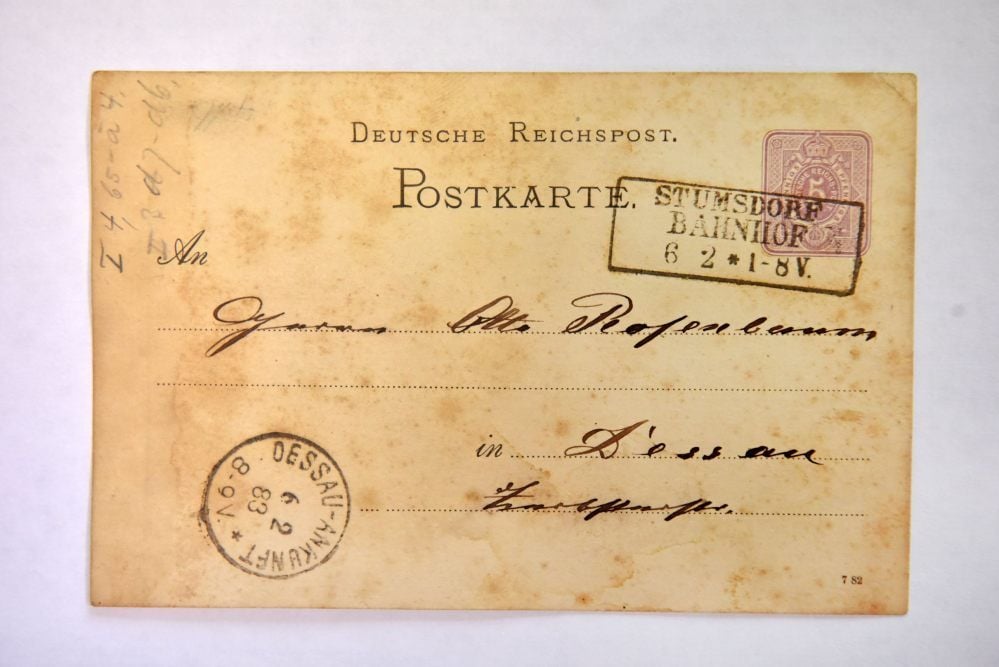 DEUTSCHE REICHSPOST.
POSTKARTE.
5
STUMSDORF
BAHNHOF
6 2 * 1-8 V.
An
Herrn Otto Rosenbaum
in Dessau
Zerbsterstr.
DESSAU-ANKUNFT *
6 2
83
8-9V.
7 82
I 4, 65-a 4.